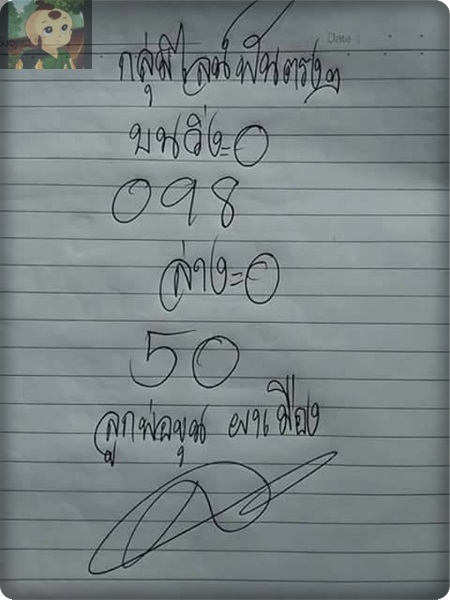 กลุ่มไลน์ฟันตรงๆ
บนวิ่ง=0
098
ล่าง=0
50
ลูกพ่อขุน ผาเมือง
Date :